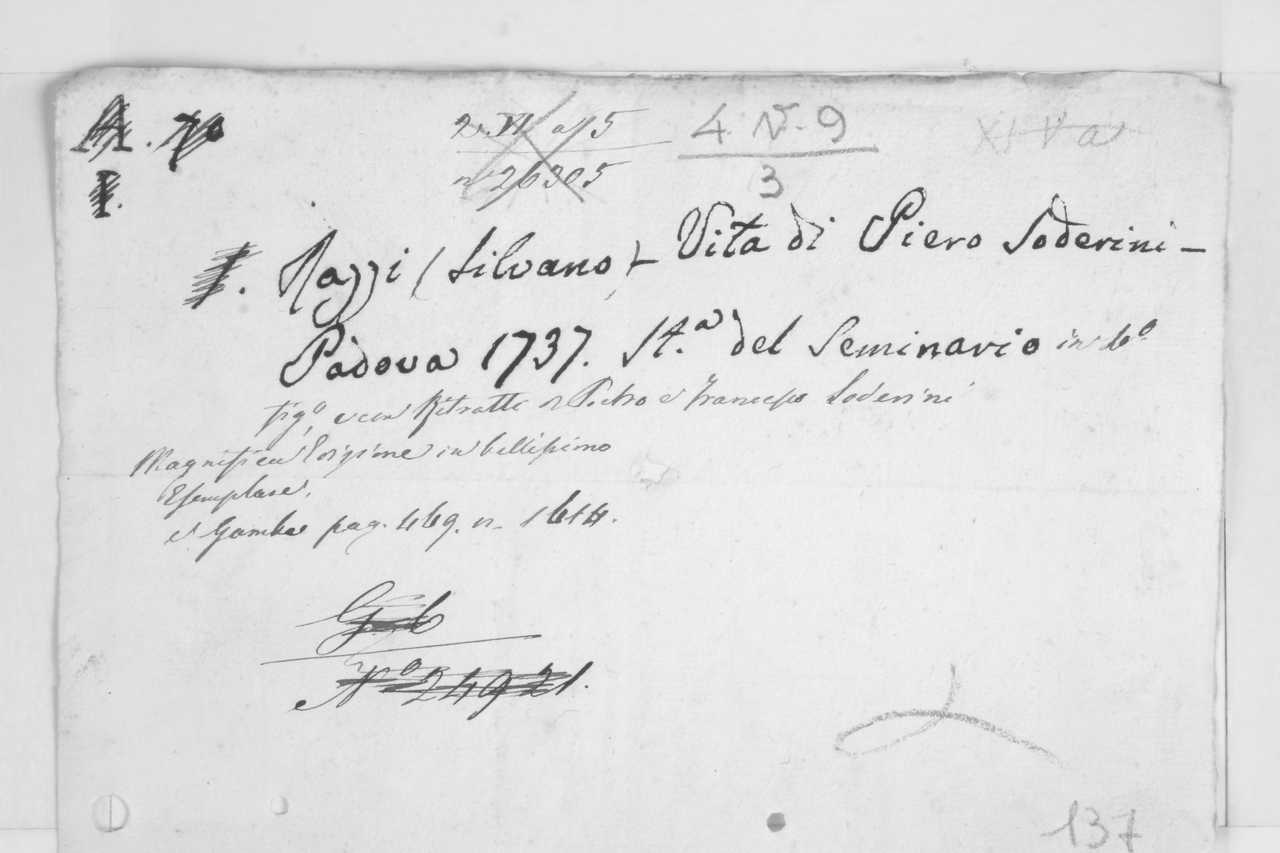 2. VI a 15
n 26305
4. V. 9
3
XI V a
I. Razzi (Silvano) – Vita di Piero Soderini –
Padova 1737. St.ª del Seminario in 4º
fig.º, e con Ritratti di Pietro e Francesco Soderini
Magnifica Edizione in bellissimo
Esemplare.
V. Gamba pag. 469. n. 1614.
Nº 24921.
137